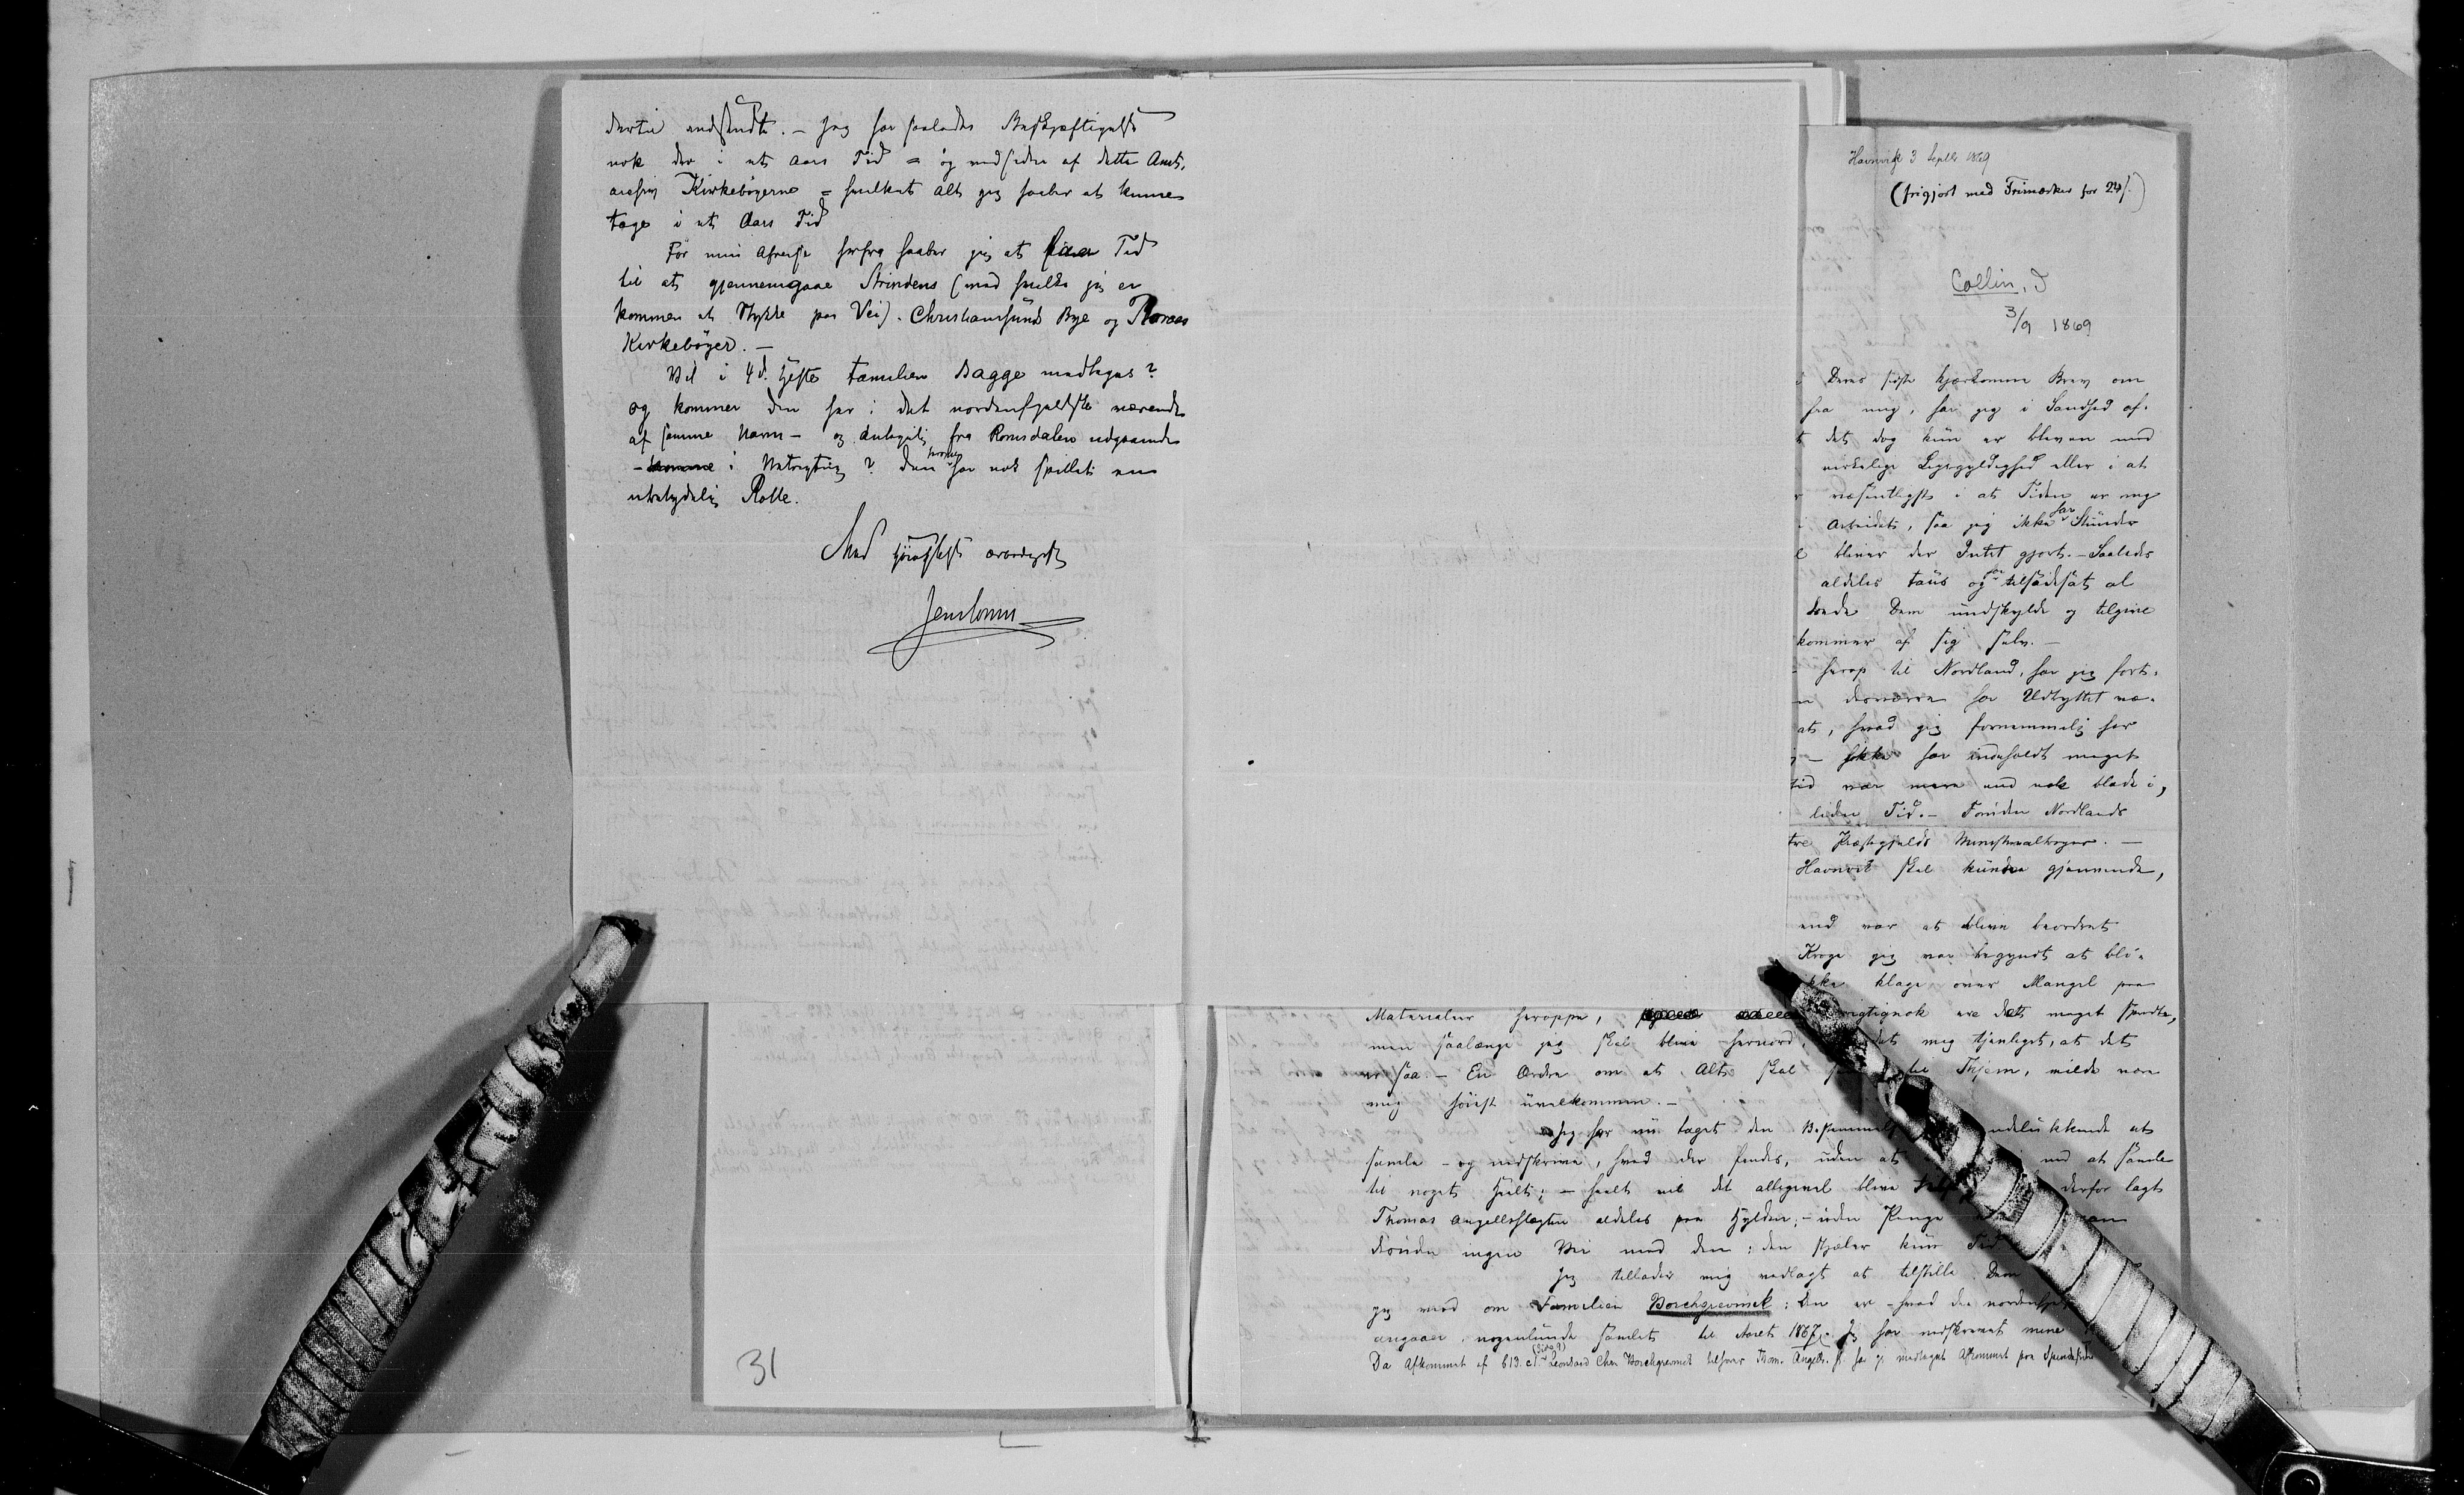 dertil nødvendigt. – Jeg har saaledes Beskjæftigelse
nok der i et Aars Tid = og ved siden af dette Amts,
archiv Kirkebøgerne = hvilket alt jeg haaber at kunne
tage i et Aars Tid
Før min Afreise herfra haaber jeg at faa Tid
til at gjennemgaae Strindens (med hvilke jeg er
kommen et Stykke paa Vei). Christiansunds Bye og Roraas
Kirkebøger. –
Vil i 4d. Hefte Familien Bagge medtages?
og kommer den her i det nordenfjeldske værende
af samme Navn – og antagelig fra Romsdalen udgaaende
– i Betragtning? den har nok spillet en
ubetydelig Rolle.
Med høiagtelse ærbødigst
31
Havnvik 3 Septbr 1869
(frigjort med Frimærker for 24 s.)
Collin, J
3/9 1869
Deres sidste kjærkomne Brev om
fra mig, har jeg i Sandhed af-
det dog kun er bleven med
virkelige Ligegyldighed eller i at
væsentligst i at Tiden er mig
Arbeidet, saa jeg ikke har Stunder
bliver der Intet gjort. – Saaledes
aldeles taus og har tilsidesat al
Dem undskylde og tilgive
kommer af sig selv. –
herop til Nordland, har jeg fort-
desværre har Udbyttet væ-
at, hvad jeg fornemmelig har
– ikke har indeholdt meget
tid var mere end nok blade i,
liden Tid. – Foruden Nordlands
tre Præstegjelds Ministerialbøger. –
Havnvik skal kunne gjennemsee,
end var at blive beordret
Kroge jeg var begyndt at bli-
ikke klage over Mangel paa
Materialier heroppe, rigtignok ere det meget spredte,
men saalænge jeg skal blive hernord, det mig tjenligst, at det
er saa. – En Ordre om at Alt skal til Thjem, vilde være
mig høist uvelkommen. –
Jeg har nu taget den Bestemmelse udelukkende at
samle – og nedskrive, hvad der findes, uden at ved at samle
til noget Heelt; – heelt vil det alligevel blive derfor lagt
Thomas Angellslægten aldeles paa Hylden; – uden Penge
duer ingen Vei med den; den stjæler kun Tid
Jeg tillader mig vedlagt at tilstille Dem
jeg veed om Familien Borchgrevinck: den er – hvad den nordenfjeld
angaaer, nogenlunde samlet til Aaret 1867. Jeg har nedskrevet mine
Da Afkommet af b13. c1. (Side 9) Leonhard Chr. Borchgrevinck tilhører Thom. Angells. st. har jeg medtaget Afkommet paa Spindesiden